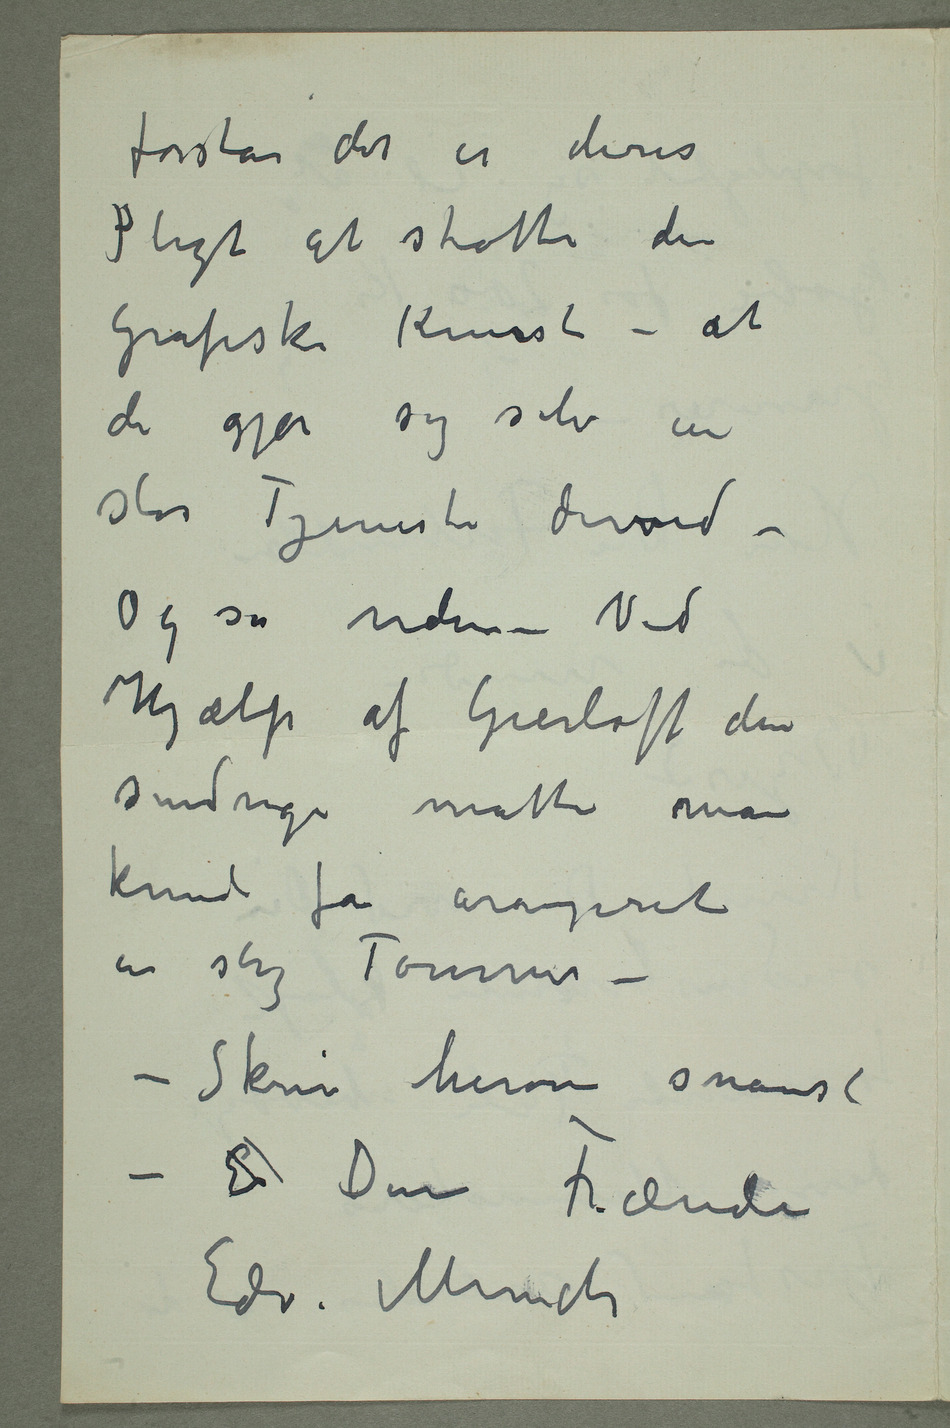 forstår det er deres
Pligt at støtte den
Grafiske Kunst – at
de gjør sig selv en
stor Tjeneste derved –
Og så videre – Ved
Hjælp af Gierløff den
sindrige måtte man
kunde få arangeret
en slig Tournee –
– Skriv herom snarest
– Din Frænde
Edv. Munch